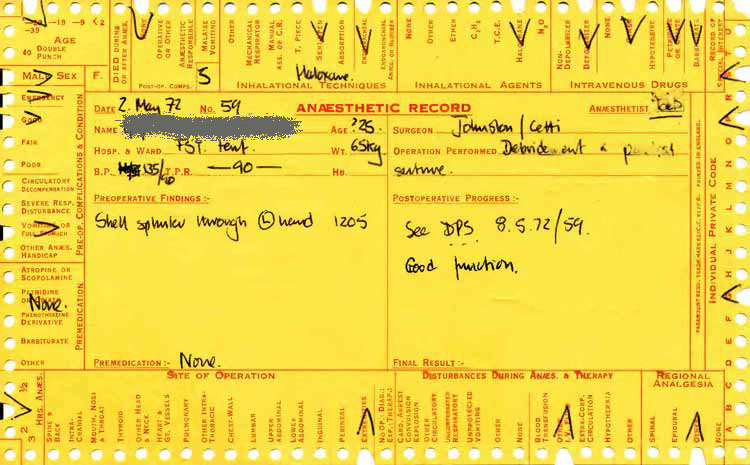 -39
-19
-9
<2
AGE
40 DOUBLE PUNCH
MALE SEX F.
DIED DURING OR AFTER ANÆS.
NONE
OPERATIVE OR OTHER
ANÆSTHETIC RESPONSIBLE
MALAISE VOMITING
OTHER
POST-OP. COMPS.
5
MECHANICAL RESPIRATOR
MANUAL ASS. OR C.R.
T. PIECE
ABSORPTION
ENDOTRACHEAL
NONE
INHALATIONAL TECHNIQUES
OTHER
ETHER
C₂H₂
T.C.E.
HALOTHANE
N₂O
INHALATIONAL AGENTS
NON-DEPOLARIZER
DEPOLARIZER
NONE
OTHER
HYPOTENSIVE
PETHIDINE OR
BARBITURATE
INTRAVENOUS DRUGS
RECORD OF SPECIAL INTEREST
EMERGENCY
GOOD
FAIR
POOR
CIRCULATORY DECOMPENSATION
SEVERE RESP. DISTURBANCE
VOMITING OR FULL STOMACH
OTHER ANÆS. HANDICAP
PRE-OP. COMPLICATIONS & CONDITION
ATROPINE OR SCOPOLAMINE
PETHIDINE OR
None.
PHENOTHIAZINE DERIVATIVE
BARBITURATE
OTHER
PREMEDICATION
DATE 2. May 72 No. 59 ANÆSTHETIC RECORD ANÆSTHETIST
NAME AGE ?25. SURGEON Johnston / Cetti
HOSP. & WARD FST. Tent. WT. 65kg OPERATION PERFORMED Debridement &
suture.
B.P. 135/90 T.P.R. —90— HB.
PREOPERATIVE FINDINGS :-
Shell splinter through Ⓛ hand 1205
PREMEDICATION :- None.
POSTOPERATIVE PROGRESS :-
See DPS 8.5.72/59.
Good function.
FINAL RESULT :-
PRINTED IN ENGLAND.
INDIVIDUAL PRIVATE CODE
½
2
3
HRS. ANÆS.
SITE OF OPERATION
SPINE & BACK
INTRA-CRANIAL
MOUTH, NOSE & THROAT
THYROID
OTHER HEAD & NECK
HEART & GT. VESSELS
PULMONARY
OTHER INTRA-THORACIC
CHEST-WALL
LUMBAR
UPPER ABDOMINAL
LOWER ABDOMINAL
INGUINAL
PERINEAL
EXTREMITIES
NO OP. DIAG.: EXP.: THERAP.)
DISTURBANCES DURING ANÆS. & THERAPY
CARD. ARREST CONVULSION EXPLOSION
OTHER CIRCULATORY
UNCORRECTED RESPIRATORY
UNPROVOKED VOMITING
NONE
BLOOD TRANSFUSION
EXTRA-CORP. CIRCULATION
HYPOTHERMIA
OTHER
REGIONAL ANALGESIA
SPINAL
EPIDURAL
OTHER
NONE